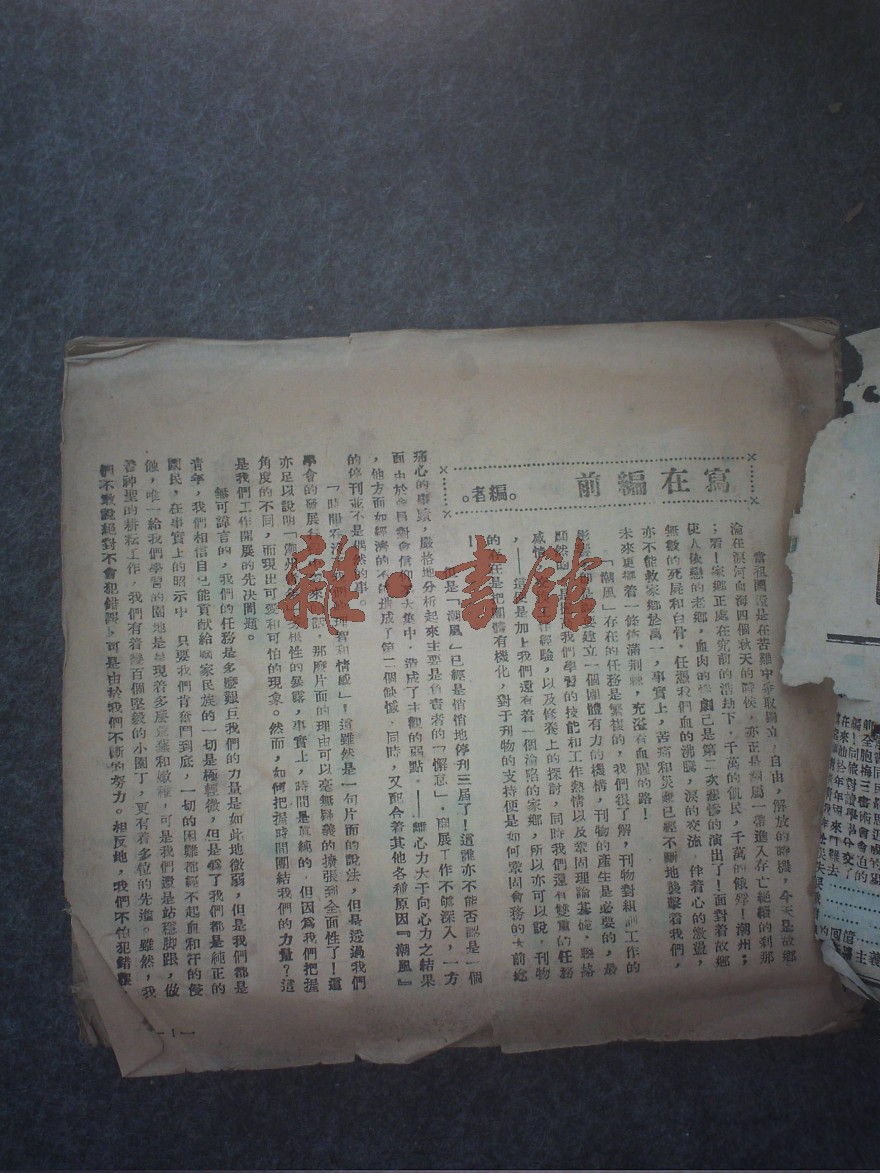 寫在編前
。編者。
當祖國還是在苦難中爭取獨立，自由，解放的時機，今天是故鄉
淪在淚河血海四個秋天的時候，亦正是潮屬一帶進入存亡絕續的刹那
；看！家鄉正處在空前的浩劫下，千萬的饑民，千萬的餓殍！潮州；
使人依戀的老鄉，血肉的慘劇已是第二次悲慘的演出了！面對着故鄉
無數的死屍和白骨，任憑我們血的沸騰，淚的交流，伴着心的激盪，
亦不能救家鄉於萬一，事實上，苦痛和災難已經不斷地襲擊着我們，
未來更擺着一條佈滿荊棘，充溢有血腥的路！
「潮風」存在的任務是繁複的，我們很了解，刊物對組訓工作的
影 要建立一個團體有力的機構，刊物的產生是必要的，最
顯然的 我們學習的技能和工作熱情以及鞏固理論基礎，聯絡
感情 作經驗，以及修養上的探討，同時我們還有雙重的任務
，——這 是加上我們還有着一個淪陷的家鄉，所以亦可以說，刊物
的存在是把團體有機化，對于刊物的支持便是如何鞏固會務的大前途
！
但是「潮風」已經是悄悄地停刊三屆了！這誰亦不能否認是一個
痛心的事蹟，嚴格地分析起來主要是負責者的「懈怠」，開展工作不够深入，一方
面由於會員對會信仰 大集中，造成了主觀的弱點，——離心力大于向心力之結果
，他方面如經濟的不 造成了第二個缺憾，同時，又配合着其他各種原因『潮風』
的停刊並不是偶然的事。
「時間 們的理智和情感」！這雖然是一句片面的說法，但是透過我們
學會的發展 來 ，那麽片面的理由可以毫無疑義的擴張到全面性了！這
亦足以說明「潮州 根性的暴露，事實上，時間是單純的，但因爲我們把握
角度的不同，而現出可愛和可怕的現象。然而，如何把握時間團結我們的力量？這
是我們工作開展的先決問題。
無可諱言的，我們的任務是多麽艱巨我們的力量是如此地微弱，但是我們都是
青年，我們相信自己能貢獻給國家民族的一切是極輕微，但是爲了我們都是純正的
國民，在事實上的昭示中，只要我們肯奮鬥到底，一切的困難都經不起血和汗的侵
蝕，唯一給我們學習的園地是呈現着多麽荒蕪和嫩稚，可是我們還是站穩脚跟，做
着神聖的耕耘工作，我們有着幾百個堅毅的小園丁，更有着多位的先進。雖然，我
們不敢說絕對不會犯錯誤，可是由於我們不斷的努力。相反地，我們不怕犯錯誤，
—1—
雜·書館